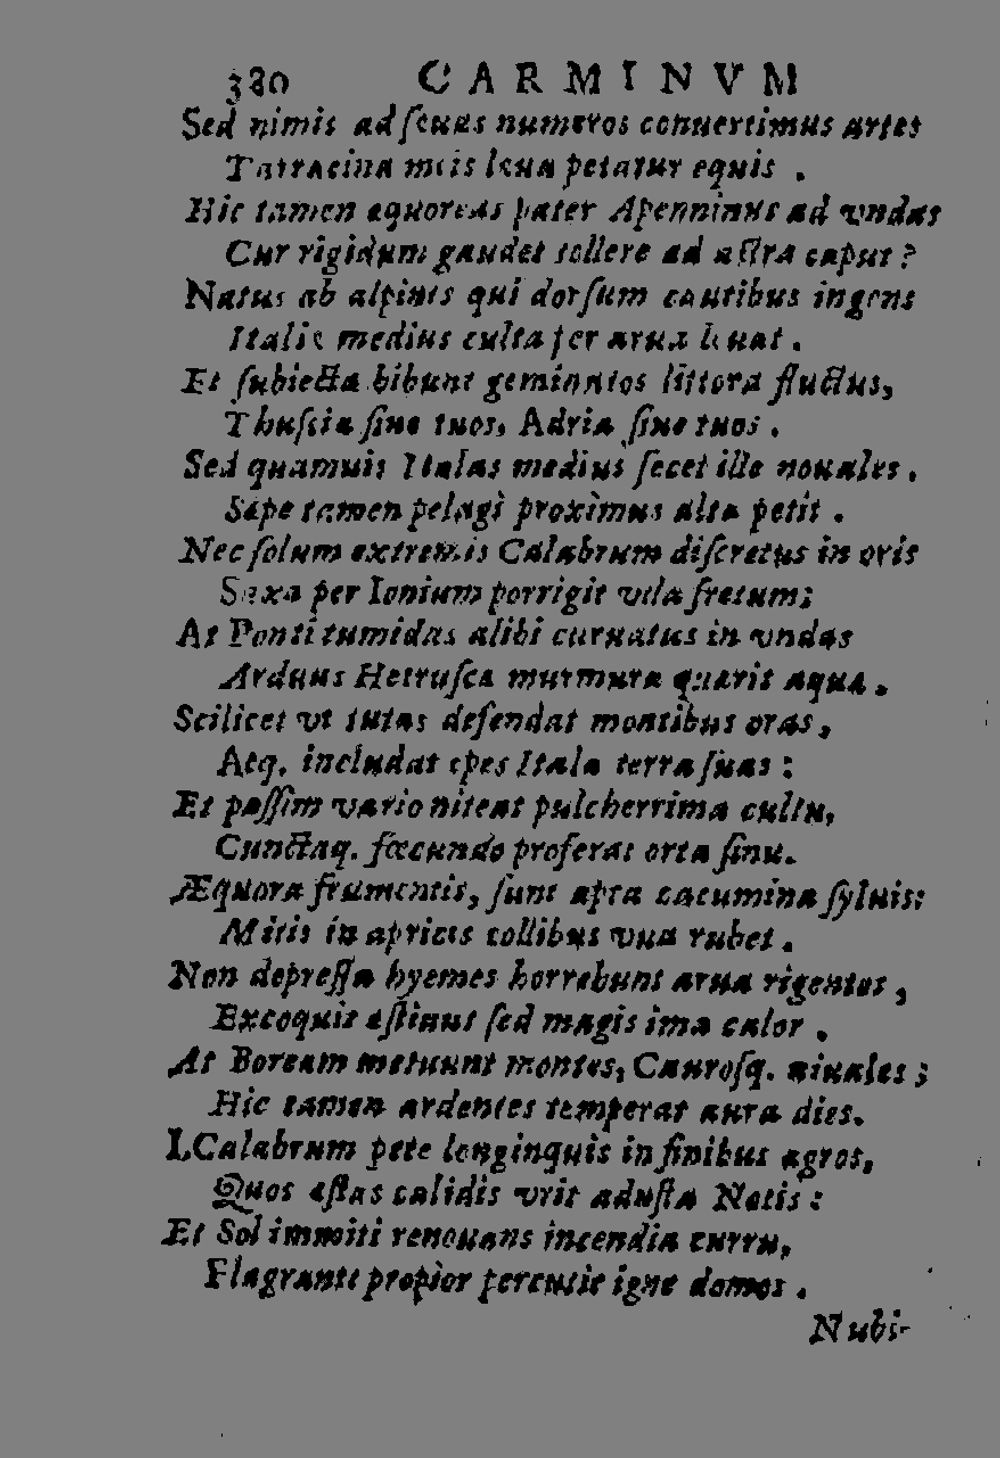 380 CARMINVM
Sed nimis ad sæuas numeros conuertimus artes
Tarracina meis læua petatur equis.
Hic tamen æquoreas pater Apenninus ad vndas
Cur rigidum gaudet tollere ad astra caput?
Natus ab alpinis qui dorsum cautibus ingens
Italiæ medius culta per arua leuat.
Et subiecta bibunt geminatos littora fluctus,
Thuscia siue tuos, Adria siue tuos.
Sed quamuis Italas medius secet ille nouales.
Sæpe tamen pelagi proximus alta petit.
Nec solum extremis Calabrum discretus in oris
Saxa per Ionium porrigit vda fretum;
At Ponti tumidas alibi curuatus in vndas
Arduus Hetrusca murmura quærit aqua.
Scilicet vt tutas defendat montibus oras,
Atq. includat opes Itala terra suas:
Et passim vario niteat pulcherrima cultu,
Cunctaq. fœcundo proferat orta sinu.
Æquora frumentis, sunt apta cacumina syluis:
Mitis in apricis collibus vua rubet.
Non depressa hyemes horrebunt arua rigentes,
Excoquit æstiuus sed magis ima calor.
At Boream metuunt montes, Caurosq. niuales;
Hic tamen ardentes temperat aura dies.
I, Calabrum pete longinquis in finibus agros,
Quos æstas calidis vrit adusta Notis:
Et Sol immiti renouans incendia curru,
Flagranti propior percutit igne domos.
Nubi-